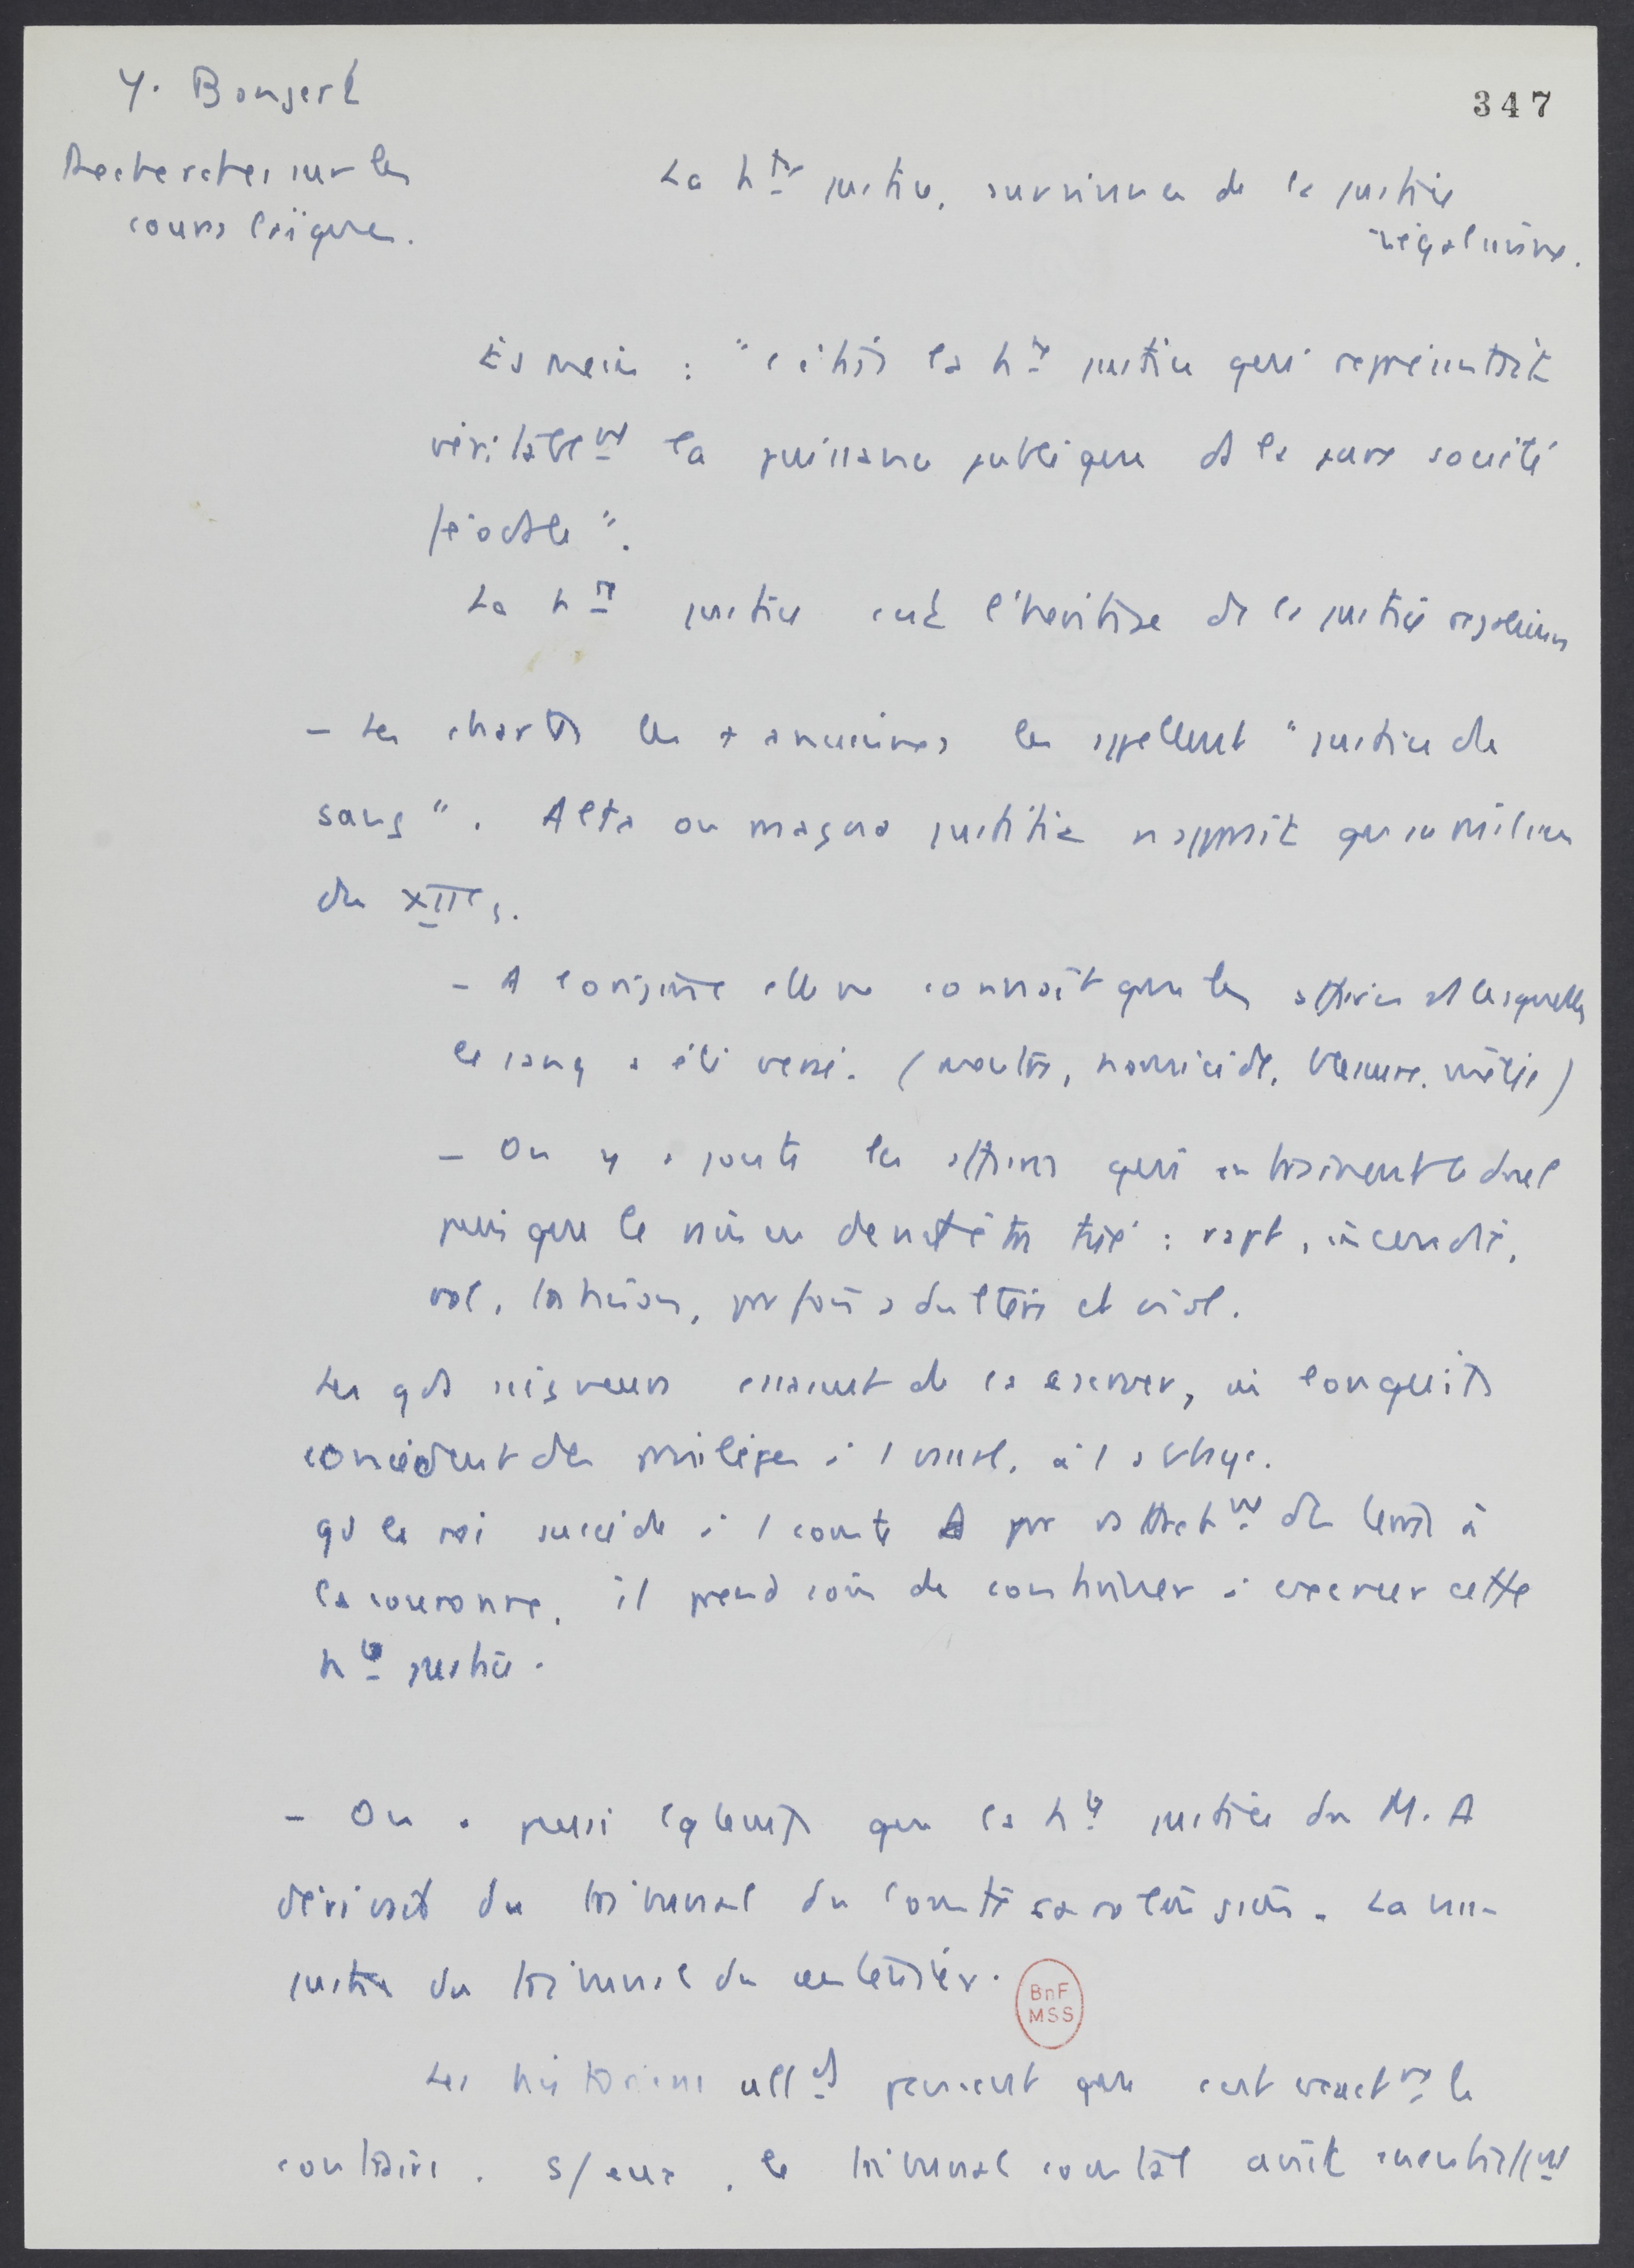 Y. Bongert
347
Recherches sur les
cours laïques.
La hte justice, survivance de la justice
régalienne.
Esmein : "c'était la hte justice qui représentait
véritablemt la puissance publique ds la pure société
féodale".
La hte justice est l'héritière de la justice régalienne
- Les chartes les + anciennes les appellent "justice de
sang". Alta ou magna justitia n'apparaît qu'au milieu
du XIIe s.
- A l'origine elle ne connaît que les affaires ds lesquelles
le sang a été versé. (meurtre, homicide, blessure, mêlée)
- On y ajoute les affaires qui entraînent le duel
puis que le vaincu devait être tué : rapt, incendie,
vol, trahison, parfois adultère et viol.
Les gds seigneurs essaient de la réserver, lorsqu'ils
concèdent des privilèges à 1 vassal, à 1 abbaye.
qd le roi succède à 1 comte par rattachmt du comté à
la couronne, il prend soin de continuer à exercer cette
hte justice.
- On a pensé longtemps que la hte justice du M. A
dérivait du tribunal du comte carolingien. La basse
justice du tribunal du centenier.
Les historiens allds pensent que c'est exactmt le
contraire. S/ eux, le tribunal comtal avait essentiellmt
BnF
MSS